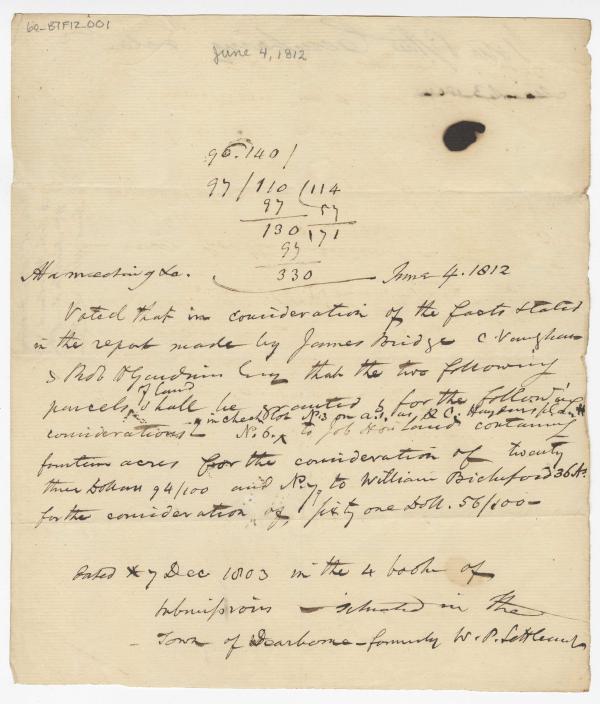 60-87F12-001
June 4, 1812
96.140/
97/110/114
97 57
130 171
97
330
At a meeting &c. June 4. 1812
Voted that in consideration of the facts stated
in the report made by James Bridge C. Vaughan
& Rob H Gardiner Esq that the two following
of land
parcels shall be granted & for the following
in check lot No. 3 on a plan
considerations No. 6. to Job Howland containing
fourteen acres for the consideration of twenty
three Dollars 94/100 and No. 7 to William Bickford 36 As.
for the consideration of sixty one Doll. 56/100-
Dated 7 Dec 1803 in the 4 book of
submissions - situated in the
- Town of Dearborne - formerly W. P. Settlement